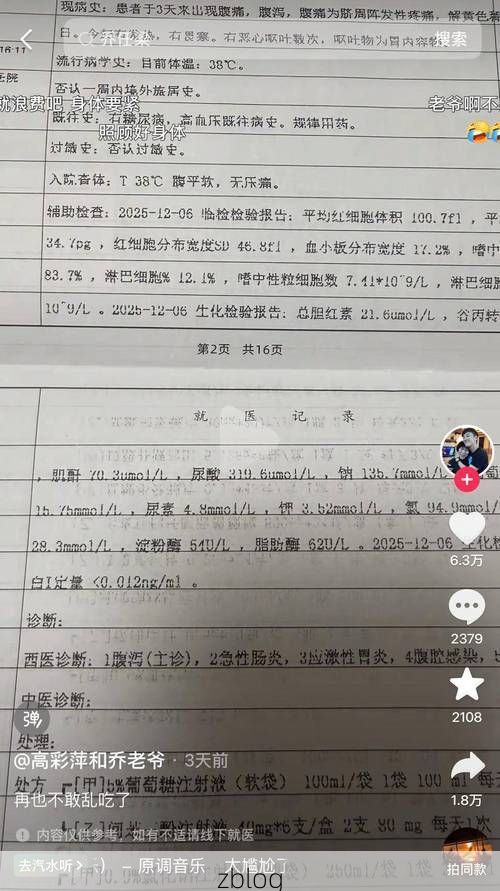 现病史：患者于3天来出现腹痛，腹泻，腹痛为脐周阵发性疼痛，解黄色
乔任梁
搜索
16:11
日，今
，有畏寒。有恶心呕吐数次，呕吐物为胃内容物
流行病学史：目前体温：38℃。
医院
否认一周内境外旅居史。
就浪费吧 身体要紧
老爷啊不
既往史：有糖尿病，高血压既往病史。规律用药。
照顾好身体
过敏史：否认过敏史。
入院查体：T 38℃ 腹平软，无压痛。
辅助检查：2025-12-06 临检检验报告：平均红细胞体积 100.7fl ，平
34.7pg ，红细胞分布宽度SD 46.8fl ，血小板分布宽度 17.2% ，嗜中
83.7% ，淋巴细胞% 12.1% ，嗜中性粒细胞数 7.41*10^9/L ，淋巴细
10^9/L 。2025-12-06 生化检验报告：总胆红素 21.6umol/L ，谷丙转
第2页 共16页
就 医 记 录
，肌酐 70.3umol/L ，尿酸 319.6umol/L ，钠 135.7mmol/L
葡
15.75mmol/L ，尿素 4.8mmol/L ，钾 3.52mmol/L ，氯 94.9mmol/
28.3mmol/L ，淀粉酶 54U/L ，脂肪酶 62U/L 。2025-12-06 生化检
6.3万
白I定量 <0.012ng/ml 。
诊断：
2379
西医诊断：1腹泻(主诊)，2急性肠炎，3应激性胃炎，4腹腔感染，5
中医诊断：
弹
2108
处理：
@高彩萍和乔老爷 · 3天前
处方 ┏[甲]5%葡萄糖注射液（软袋） 100ml/袋 1袋 100 ml 每天
再也不敢乱吃了
1.8万
注射用 40mg*6支/盒 2支 80 mg 每天1次
内容仅供参考，如有不适请线下就医
去汽水听 〉 :) – 原调音乐 大尴尬
250ml/袋 1袋
拍同款
zblog